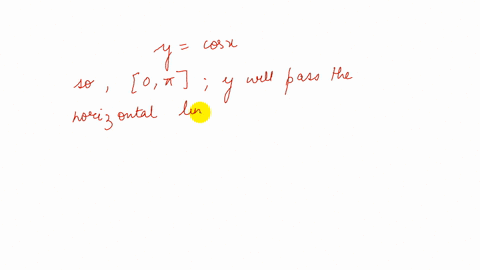 y = cosx
so, [0, π] ; y will pass the
horizontal lin